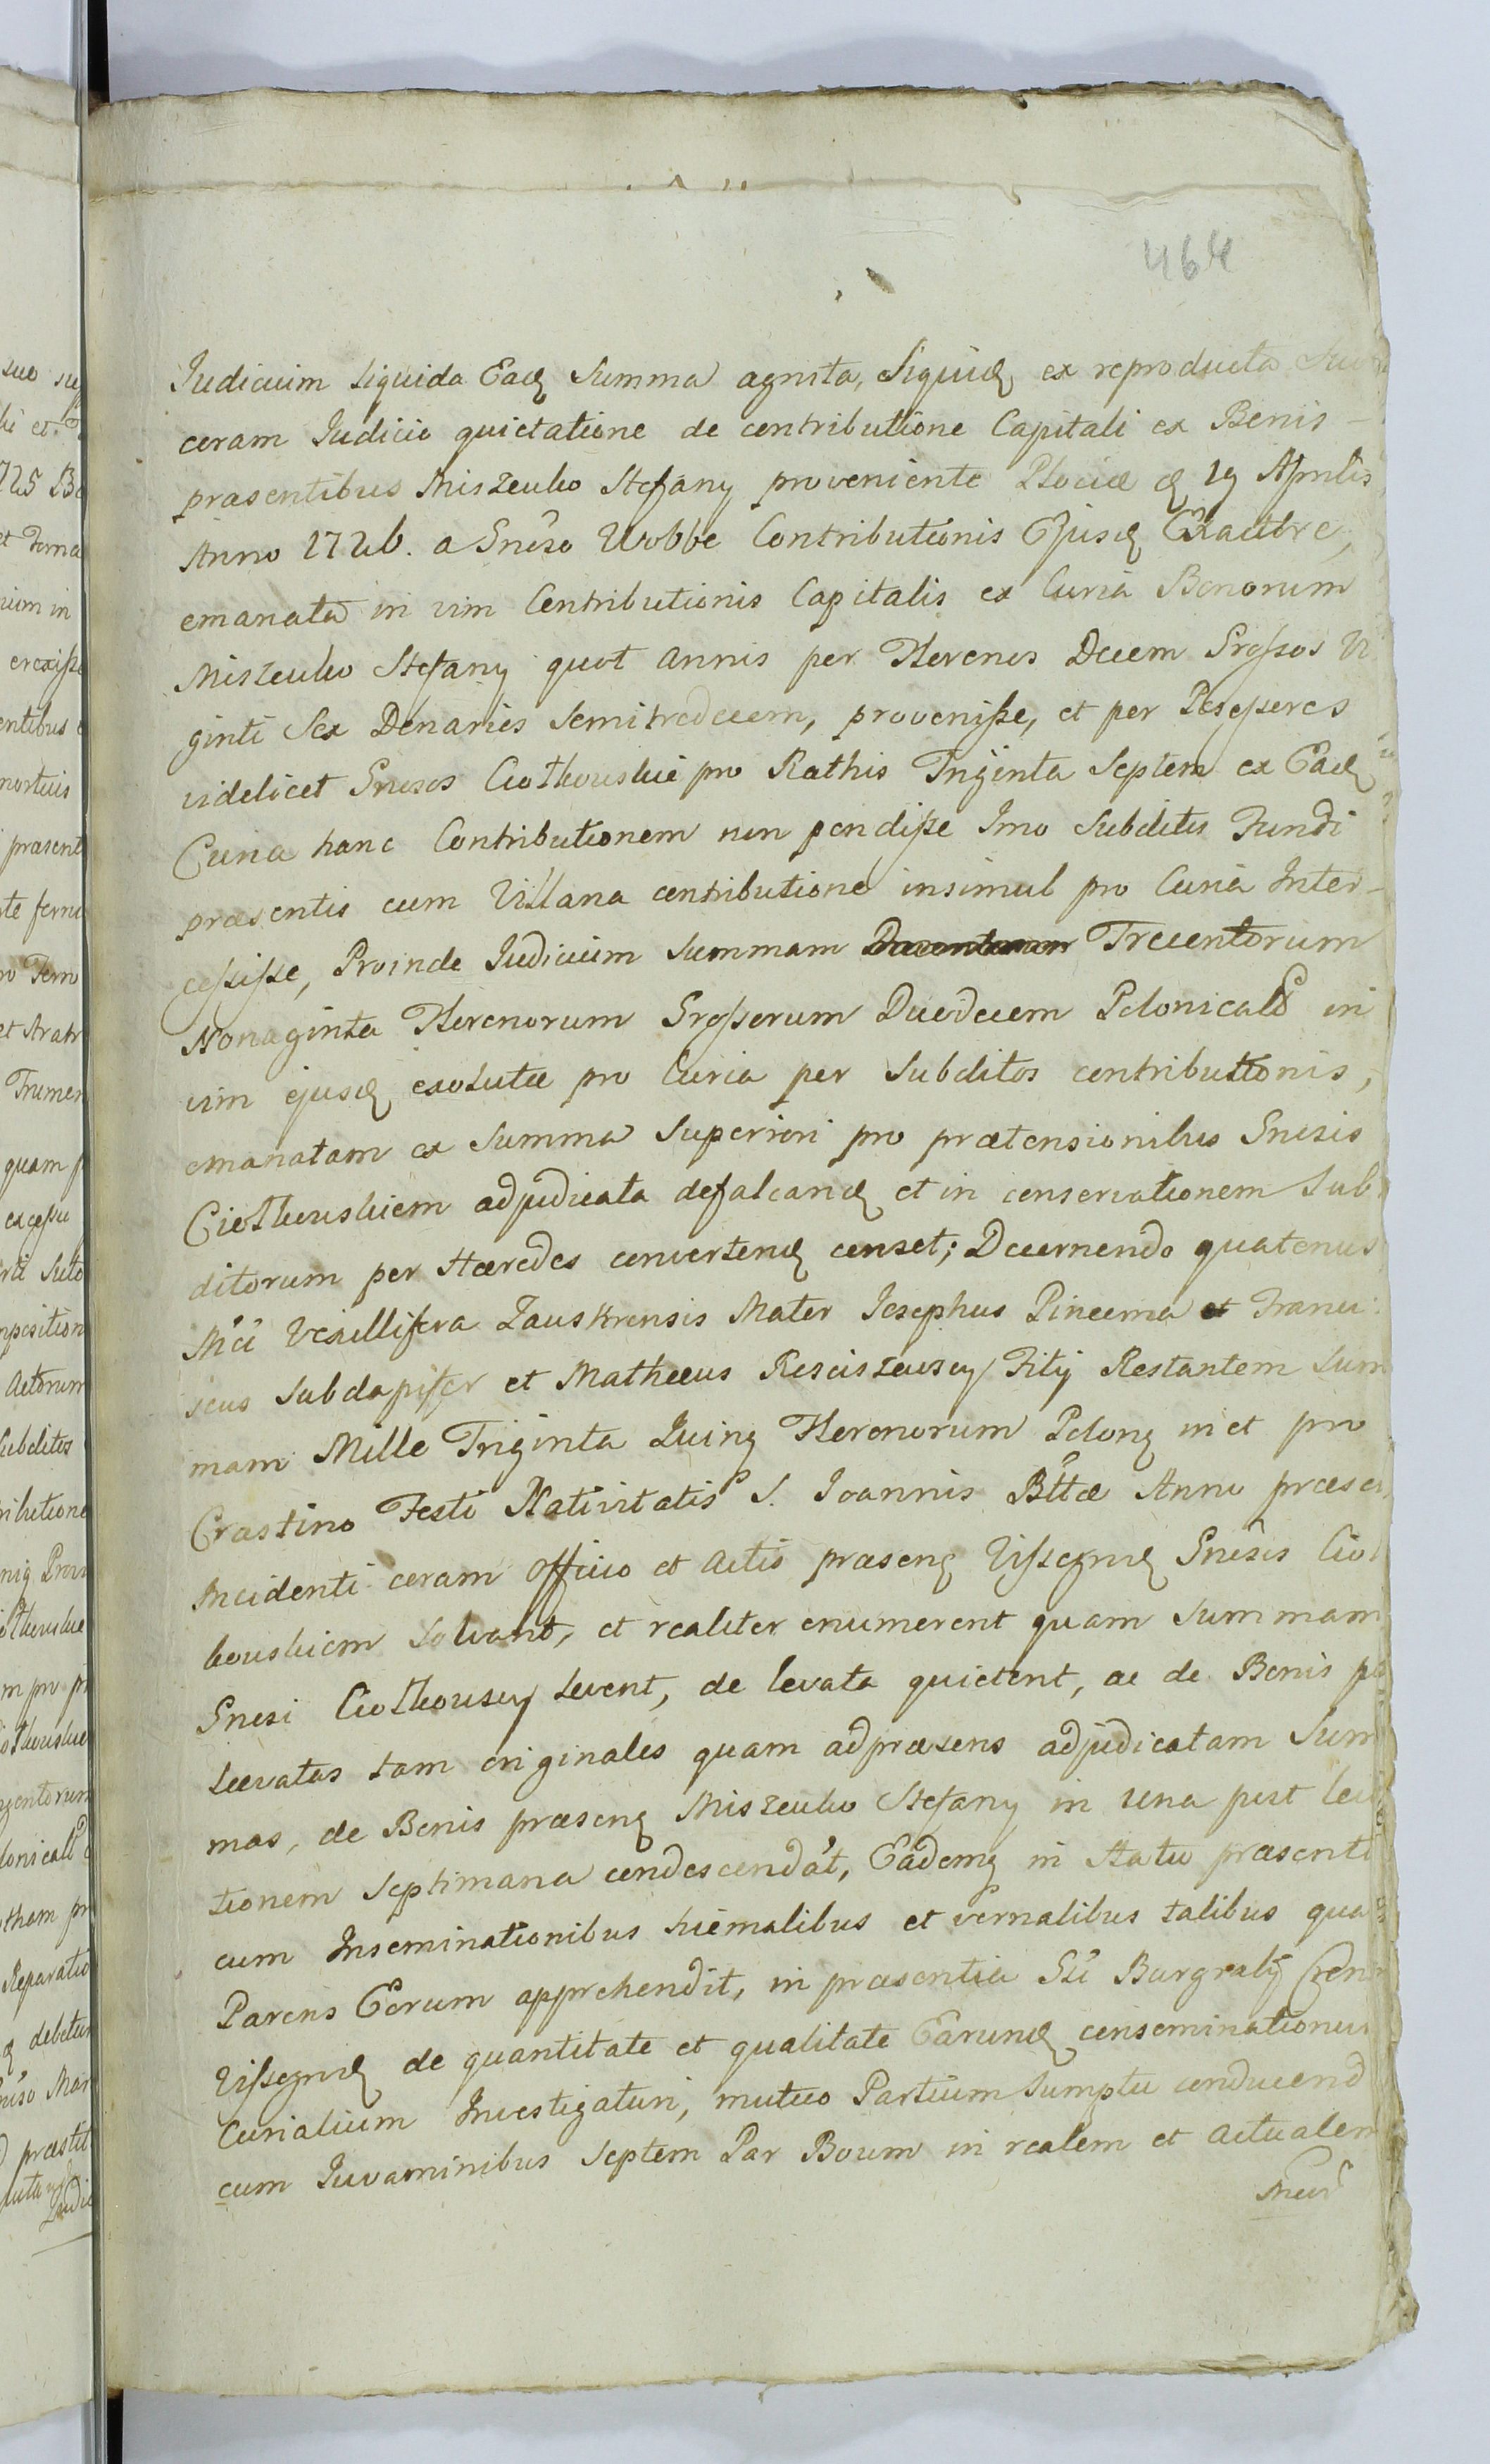 464
Judicium liquida Eadq summa agnita, Siquidq ex reproducta
coram Judicio quietatione de contributione Capitali ex Bonis –
præsentibus Miszewko Stefany proveniente Plociæ dq 19 Aprilis
Anno 1726. a Gnêso Wobbe Contributionis Ejusdq Exactore,
emanata in vim Contributionis Capitalis ex Curia Bonorum
Miszewko Stefany quot annis per Florenos Decem Grossos Vi
ginti Sex Denarios Semitredecem, provenisse, et per Possessores
videlicet Gnesos Ciołkowskie pro Rathis Triginta Septem ex Eadq
Curia hanc Contributionem non pendisse Imo Subditis Fundi
præsentis cum Villana contributione insimul pro Curia Inter-
cessisse, Proinde Judicium Summam Trecentorum
Nonaginta Florenorum Grossorum Duodecem Polonicalˀ in
vim ejusdq exolutæ pro Curia per Subditos contributionis,
emanatam ex Summa Superiori pro prætensionibus Gnesis
Ciołkowskiem adjudicata defalcandq et in conservationem Sub
ditorum per Hæredes convertendq censet; Decernendo quatenus
Mcˀi Vexillifera Zauskrensis Mater Josephus Pincerna et Franci:
scus Subdapifer et Matheus Resciszewscy Filij Restantem Sum
mam Mille Triginta Quinq Florenorum Polonq in et pro
Crastino Festi Nativitatis S. Joannis Bˀttæ Anno præsen
Incidenti coram Officio et Actis præsenq Vissegndq Gnêsis Cioł
kowskiem Solvant, et realiter enumerent quam Summam
Gnesi Ciołkowscy levent, de levata quietent, ac de Bonis
Lævatas tam originales quam adpræsens adjudicatam Sum
mas, de Bonis præsenq Miszewko Stefany in una post leva
tionem Septimana condescendat, Eademq in Statu præsenti
cum Inseminationibus hiemalibus et vernalibus talibus qua
Parens Eorum apprehendit, in præsentia Burgrabij
Vissegndq de quantitate et qualitate Earundq conseminationum
Curialium Investigaturi, mutuo Partium Sumptu conducend
cum Juvaminibus Septem Par Boum in realem et actualem